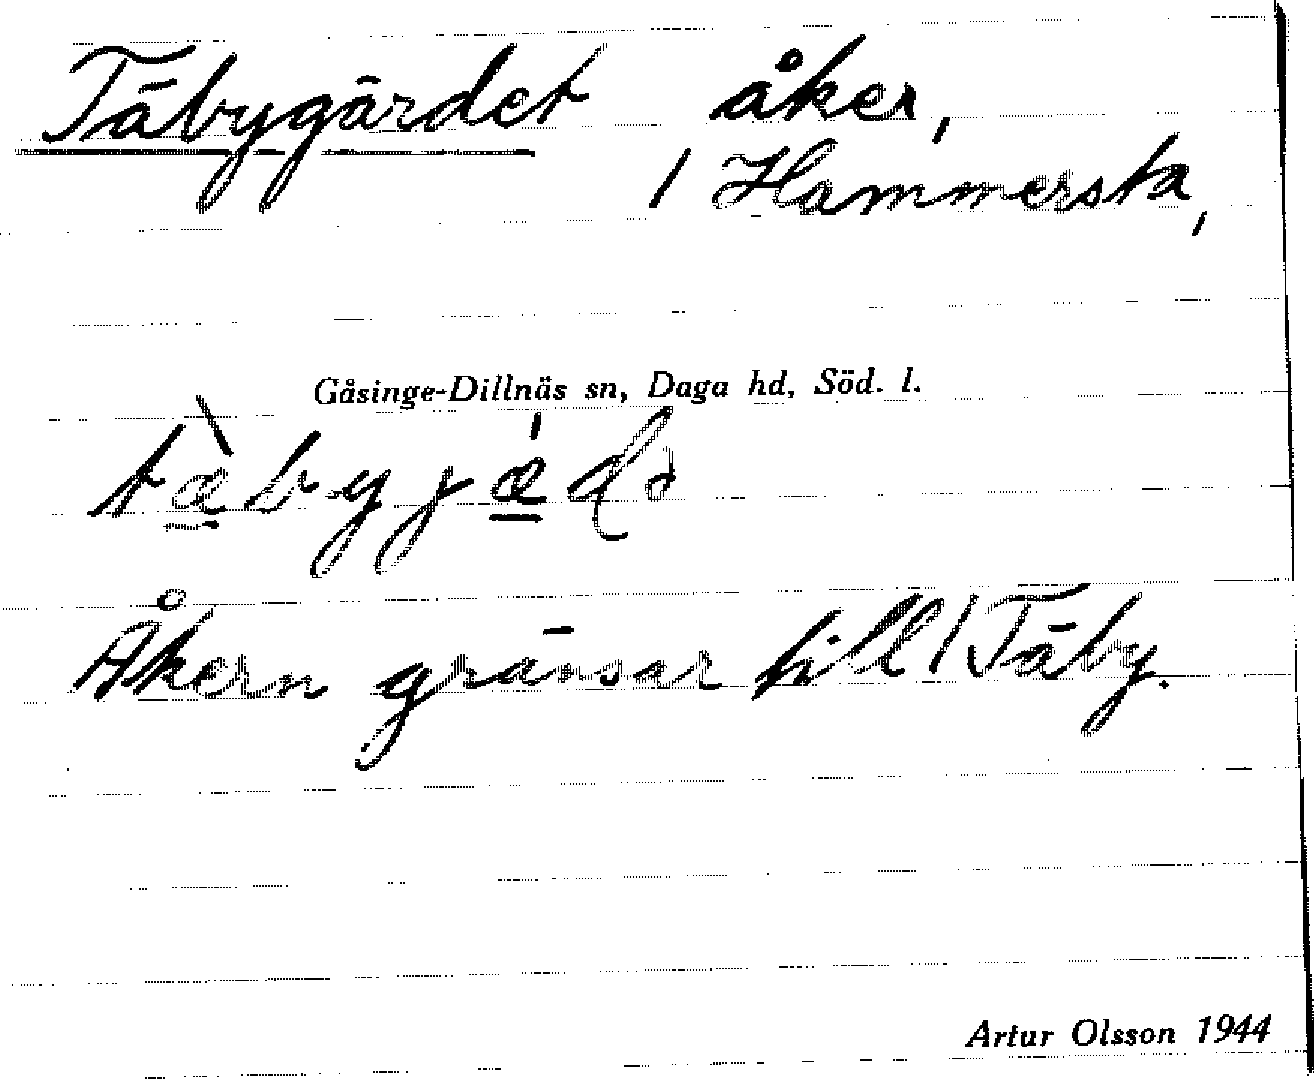 Täbygärdet åker,
/ Hammersta,
Gåsinge-Dillnäs sn, Daga hd, Söd. l.
Åkern gränsar till / Täby.
Artur Olsson 1944